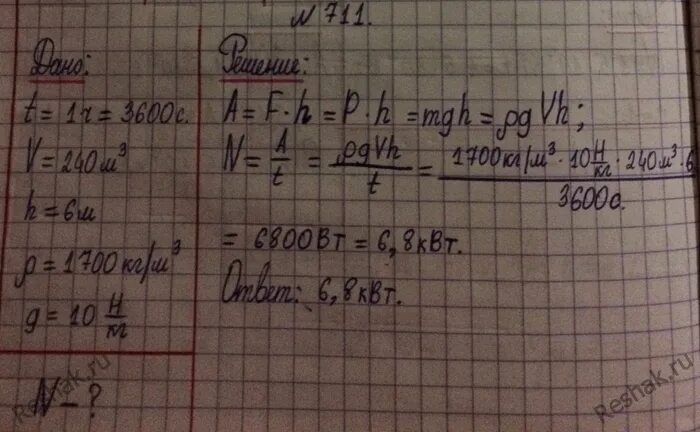 N 711.
Дано:
t = 1ч = 3600с.
V = 240м³
h = 6м
ρ = 1700 кг/м³
g = 10 Н/кг
N - ?
Решение:
A = F·h = P·h = mgh = ρgVh;
N = A/t = ρgVh/t = 1700кг/м³ · 10 Н/кг · 240м³ · 6/3600с.
= 6800Вт = 6,8кВт.
Ответ: 6,8кВт.
Reshak.ru
Reshak.ru